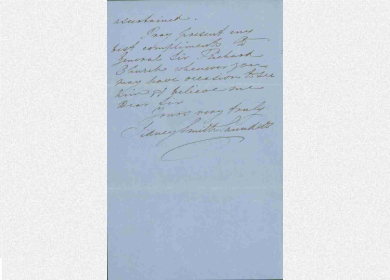 ascertained.
Pray present my
best compliments to
General Sir Richard
Church whenever you
may have occasion to see
him & believe me
Dear Sir
Yours very truly
Sidney Smith Saunders